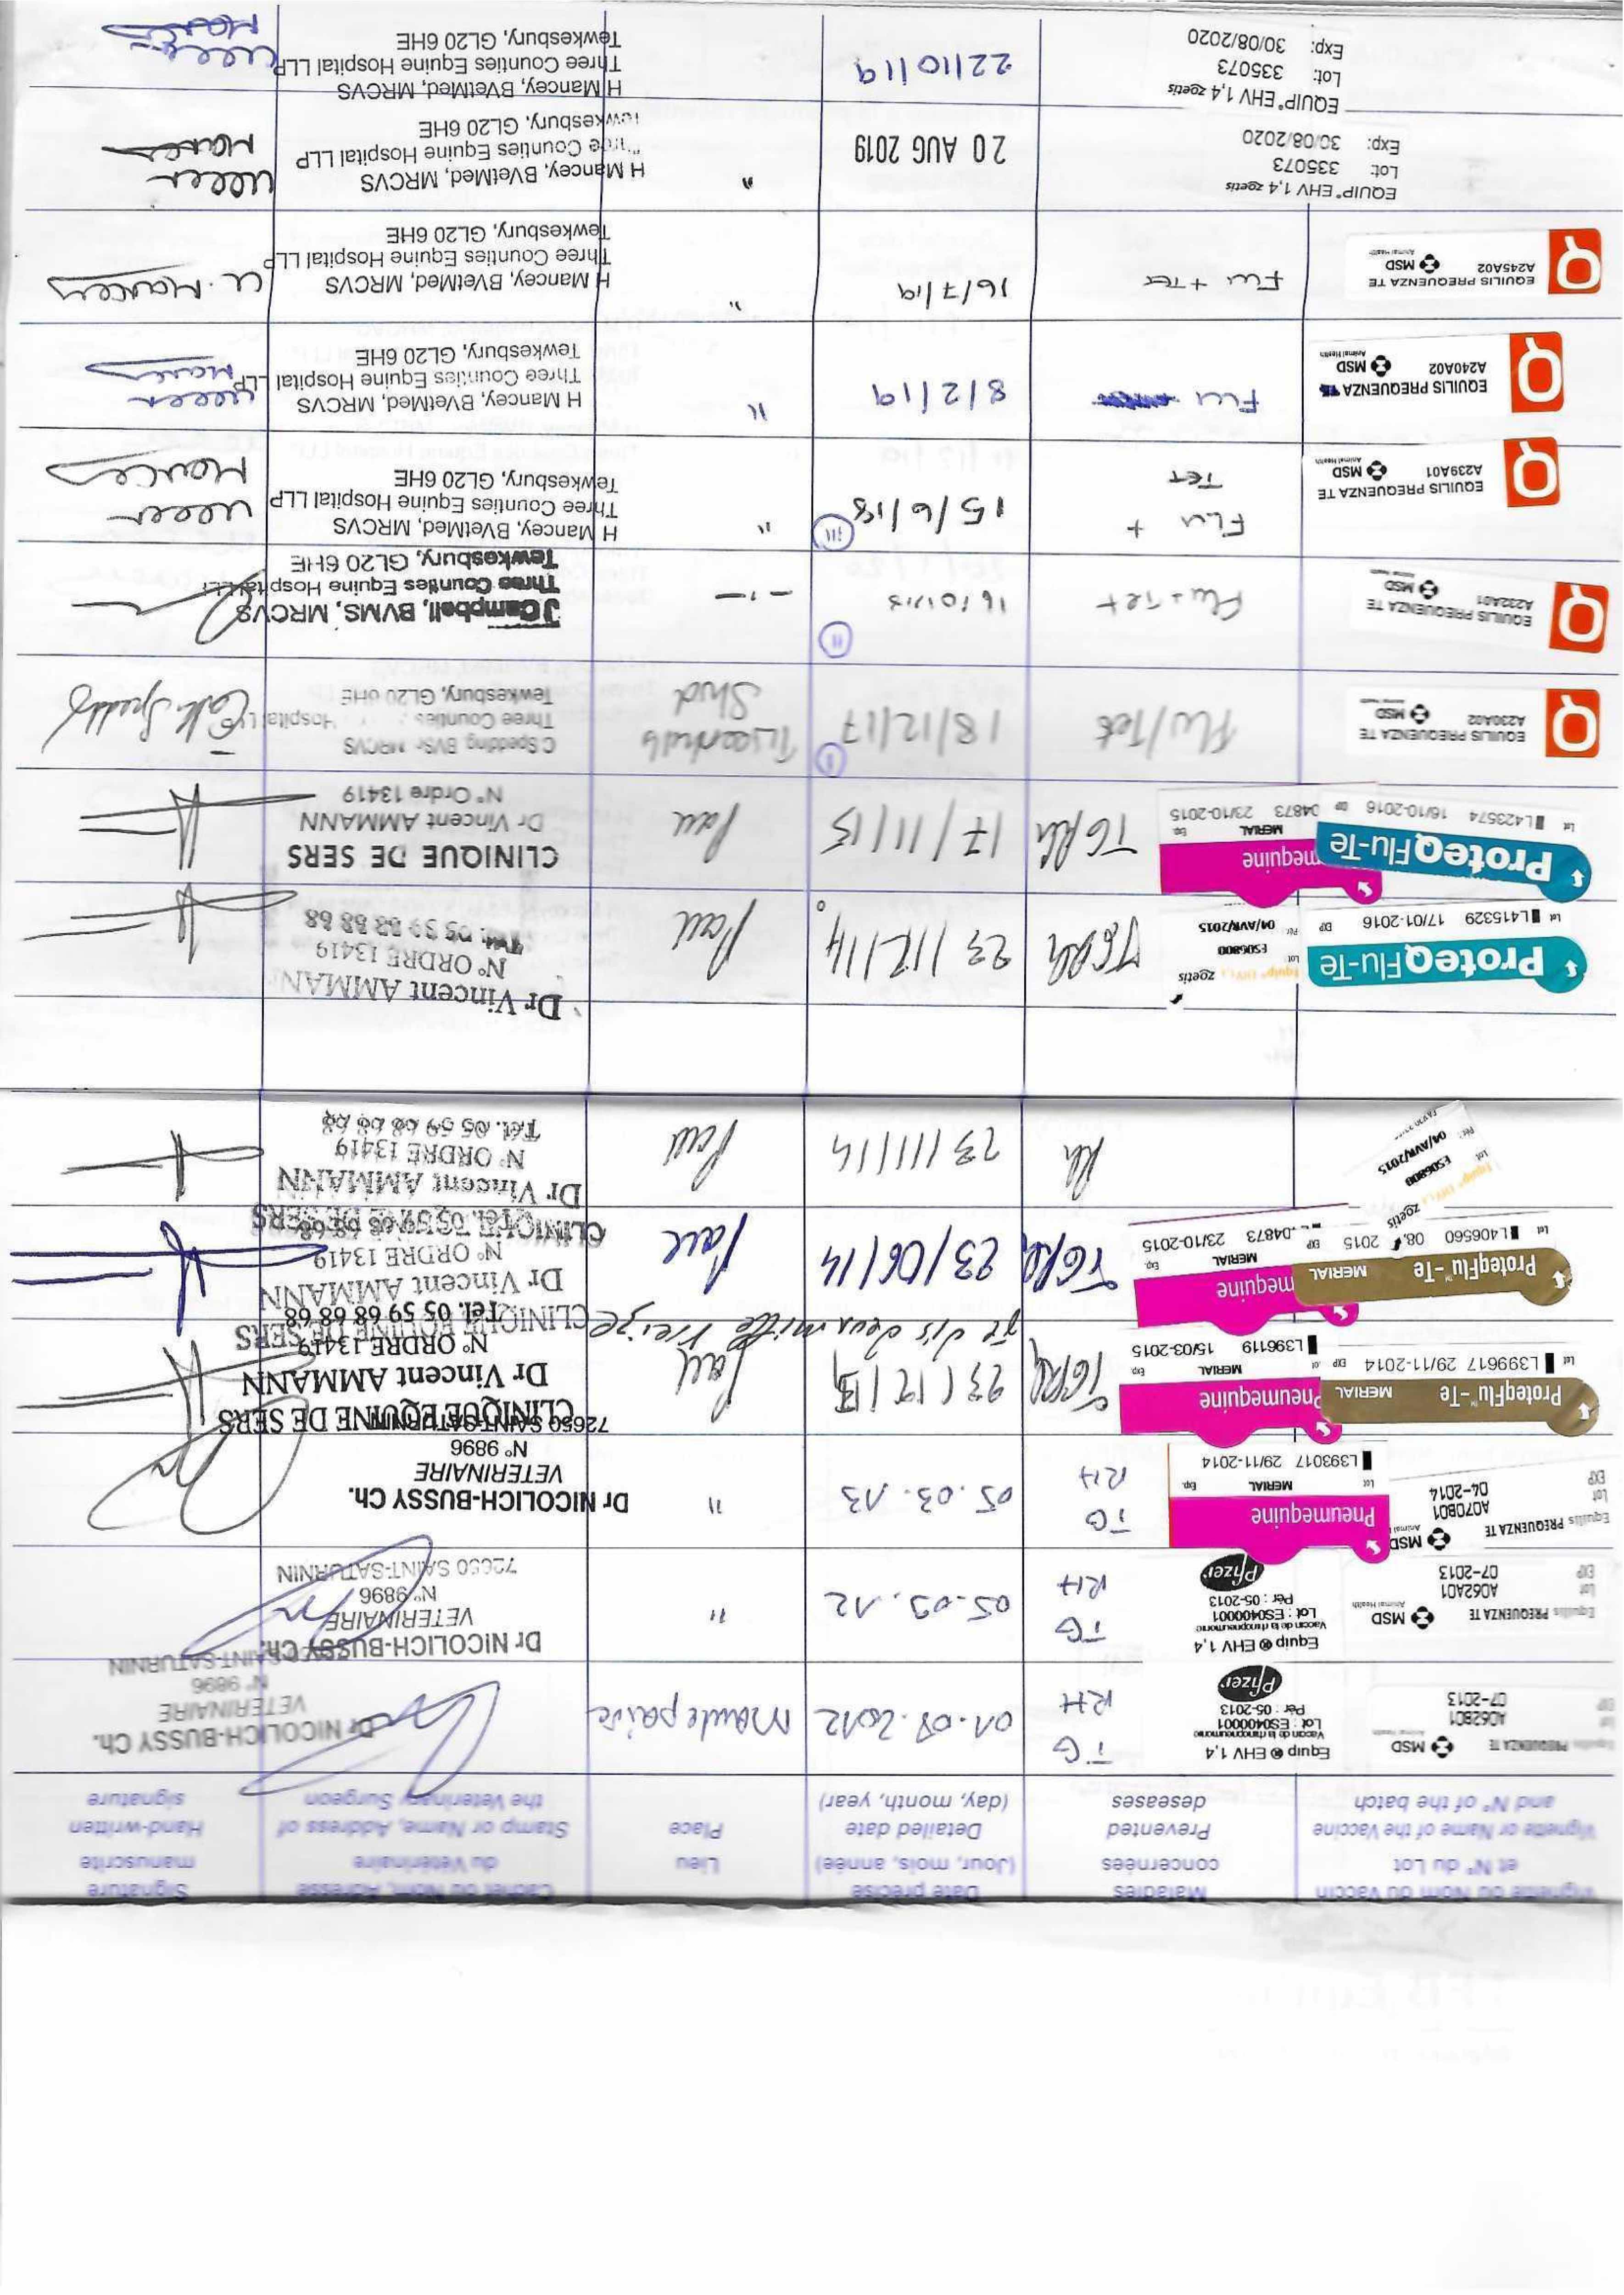 Vignette ou Nom du Vaccin
et N° du Lot
Vignette or Name of the Vaccine
and N° of the batch
Maladies
concernées
Prevented
deseases
Date précise
(Jour, mois, année)
Detailed date
(day, month, year)
Lieu
Place
Cachet ou Nom, Adresse
du Vétérinaire
Stamp or Name, Address of
the Veterinary Surgeon
Signature
manuscrite
Hand-written
signature
Equilis PREQUENZA TE MSD Animal Health
Lot A062B01
EXP 07-2013
Equip ® EHV 1,4
Vaccin de la rhinopneumonie
Lot : ES0400001
Pér : 05-2013
Pfizer
TG
RH
01.08.2012
Dr NICOLICH-BUSSY Ch.
VETERINAIRE
N° 9896
72650 SAINT-SATURNIN
Equilis PREQUENZA TE MSD Animal Health
Lot A062A01
EXP 07-2013
Equip ® EHV 1,4
Vaccin de la rhinopneumonie
Lot : ES0400001
Pér : 05-2013
Pfizer
TG
RH
05.09.12
"
Dr NICOLICH-BUSSY Ch.
VETERINAIRE
N° 9896
72650 SAINT-SATURNIN
Equilis PREQUENZA TE MSD Animal
Lot A070B01
EXP 04-2014
Pneumequine
Lot MERIAL Exp
L393017 29/11-2014
TG
RH
05.03.13
"
Dr NICOLICH-BUSSY Ch.
VETERINAIRE
N° 9896
72650 SAINT-SATURNIN
ProteqFlu™-Te MERIAL
Lot L399617 29/11-2014 EXP
Pneumequine
MERIAL Exp
L396119 15/03-2015
TGRh
23/12/13
Pau
CLINIQUE EQUINE DE SERS
Dr Vincent AMMANN
N° ORDRE 13419
Tél. 05 59 68 68 68
dix deux mille treize
ProteqFlu™-Te MERIAL
Lot L406560 08, 2015 EXP
mequine
MERIAL Exp
04873 23/10-2015
TGRh
23/06/14
Pau
CLINIQUE EQUINE DE SERS
Dr Vincent AMMANN
N° ORDRE 13419
Tél. 05 59 68 68 68
zoetis
Equip® EHV1,4
Lot ES06800
Pér. 04/AVR/2015
Rh
23/11/14
Pau
CLINIQUE EQUINE DE SERS
Dr Vincent AMMANN
N° ORDRE 13419
Tél. 05 59 68 68 68
ProteqFlu-Te
Lot L415329 17/01-2016 EXP
zoetis
Equip® EHV1,4
Lot ES06800
Pér. 04/AVR/2015
TGRh
23/12/14
Pau
Dr Vincent AMMANN
N° ORDRE 13419
Tél. 05 59 68 68 68
ProteqFlu-Te
Lot L423574 16/10-2016 EXP
mequine
MERIAL Exp
04873 23/10-2015
TGRh
17/11/15
Pau
CLINIQUE DE SERS
Dr Vincent AMMANN
N° Ordre 13419
EQUILIS PREQUENZA TE
A230A02 MSD Animal Health
Flu/Tet
I
18/12/17
Stud
C Spedding BVSc MRCVS
Three Counties Hospital LLP
Tewkesbury, GL20 6HE
EQUILIS PREQUENZA TE
A232A01 MSD Animal Health
Flu+Tet
II
-"-
J Campbell, BVMS, MRCVS
Three Counties Equine Hospital LLP
Tewkesbury, GL20 6HE
EQUILIS PREQUENZA TE
A239A01 MSD Animal Health
FLU +
TET
III
15/6/18
"
H Mancey, BVetMed, MRCVS
Three Counties Equine Hospital LLP
Tewkesbury, GL20 6HE
EQUILIS PREQUENZA
A240A02 MSD Animal Health
FLU
8/2/19
"
H Mancey, BVetMed, MRCVS
Three Counties Equine Hospital LLP
Tewkesbury, GL20 6HE
EQUILIS PREQUENZA TE
A245A02 MSD Animal Health
Flu + Tet
16/7/19
"
H Mancey, BVetMed, MRCVS
Three Counties Equine Hospital LLP
Tewkesbury, GL20 6HE
H. Mancey
EQUIP® EHV 1,4 zoetis
Lot: 335073
Exp: 30/08/2020
20 AUG 2019
"
H Mancey, BVetMed, MRCVS
Three Counties Equine Hospital LLP
Tewkesbury, GL20 6HE
EQUIP® EHV 1,4 zoetis
Lot: 335073
Exp: 30/08/2020
22/10/19
H Mancey, BVetMed, MRCVS
Three Counties Equine Hospital LLP
Tewkesbury, GL20 6HE